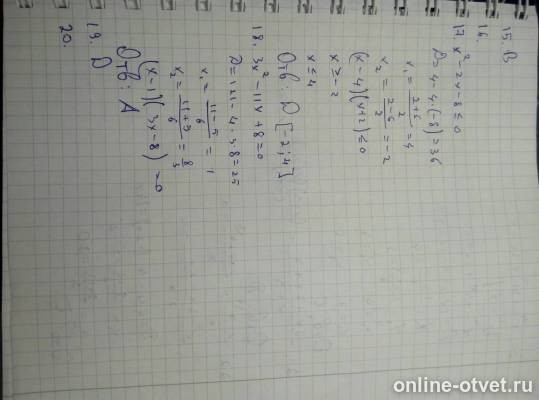 15. В
16.
17. x² - 2x - 8 ≤ 0
D = 4 - 4·(-8) = 36
x₁ = (2+6)/2 = 4
x₂ = (2-6)/2 = -2
(x-4)(x+2) ≤ 0
x ≥ -2
x ≤ 4
Отв: D [-2; 4]
18. 3x² - 11x + 8 = 0
D = 121 - 4·3·8 = 25
x₁ = (11-5)/6 = 1
x₂ = (11+5)/6 = 8/3
(x-1)(3x-8) = 0
Отв: А
19. D
20.
online-otvet.ru